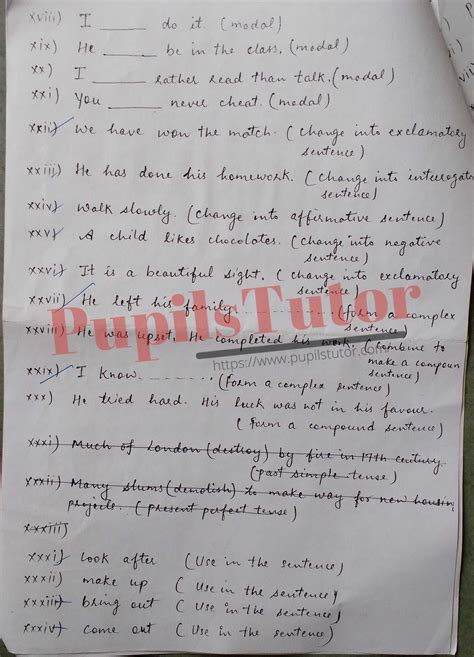 xviii) I ______ do it. (modal)
xix) He ______ be in the class. (modal)
xx) I ______ rather read than talk. (modal)
xxi) You ______ never cheat. (modal)
xxii) We have won the match. (Change into exclamatory
sentence)
xxiii) He has done his homework. (Change into interrogat
sentence)
xxiv) Walk slowly. (Change into affirmative sentence)
xxv) A child likes chocolates. (Change into negative
sentence)
xxvi) It is a beautiful sight. (Change into exclamatory
sentence)
xxvii) He left his family .......... (form a complex
sentence)
PupilsTutor
xxviii) He was upset. He completed his work. (Combine to
https://www.pupilstutor.com
make a compoun
sentence)
xxix) I know .......... (Form a complex sentence)
xxx) He tried hard. His luck was not in his favour.
(Form a compound sentence)
xxxi) Much of London (destroy) by fire in 17th century.
(past simple tense)
xxxii) Many slums (demolish) to make way for new housing
projects. (present perfect tense)
xxxiii)
xxxi) look after (Use in the sentence)
xxxii) make up (Use in the sentence)
xxxiii) bring out (Use in the sentence)
xxxiv) come out (Use in the sentence)